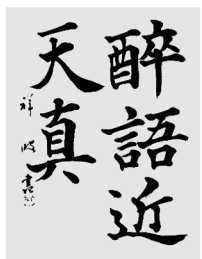 醉語近
天真
祥
書